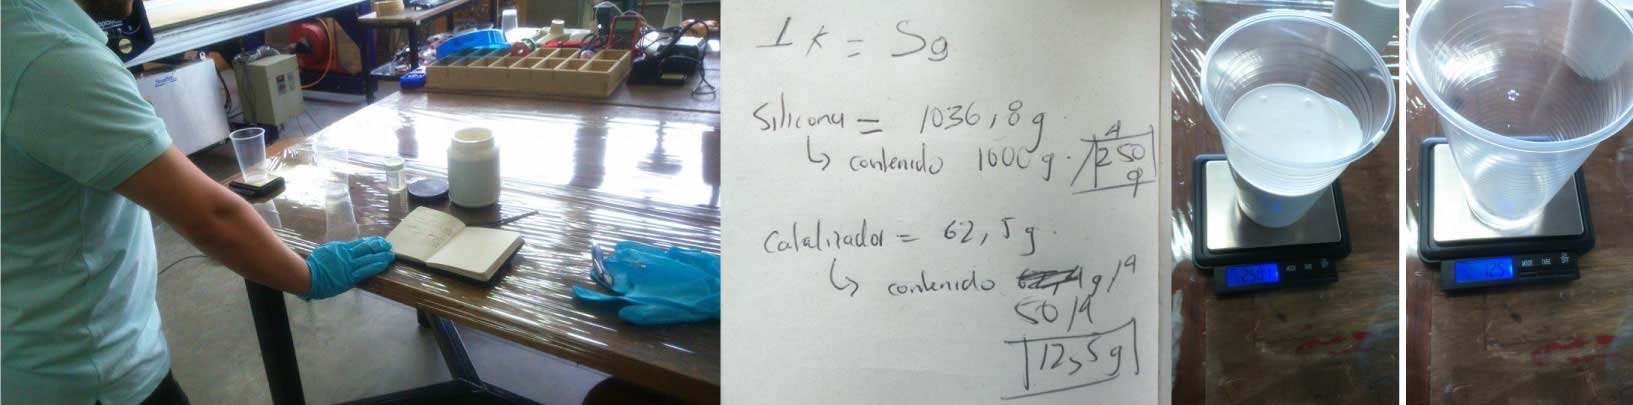 1 K = 5g
Silicona = 1036,8 g.
↳ contenido 1000 g. /4
250
g
Catalizador = 62,5 g.
↳ contenido g/4
50/4
12,5 g